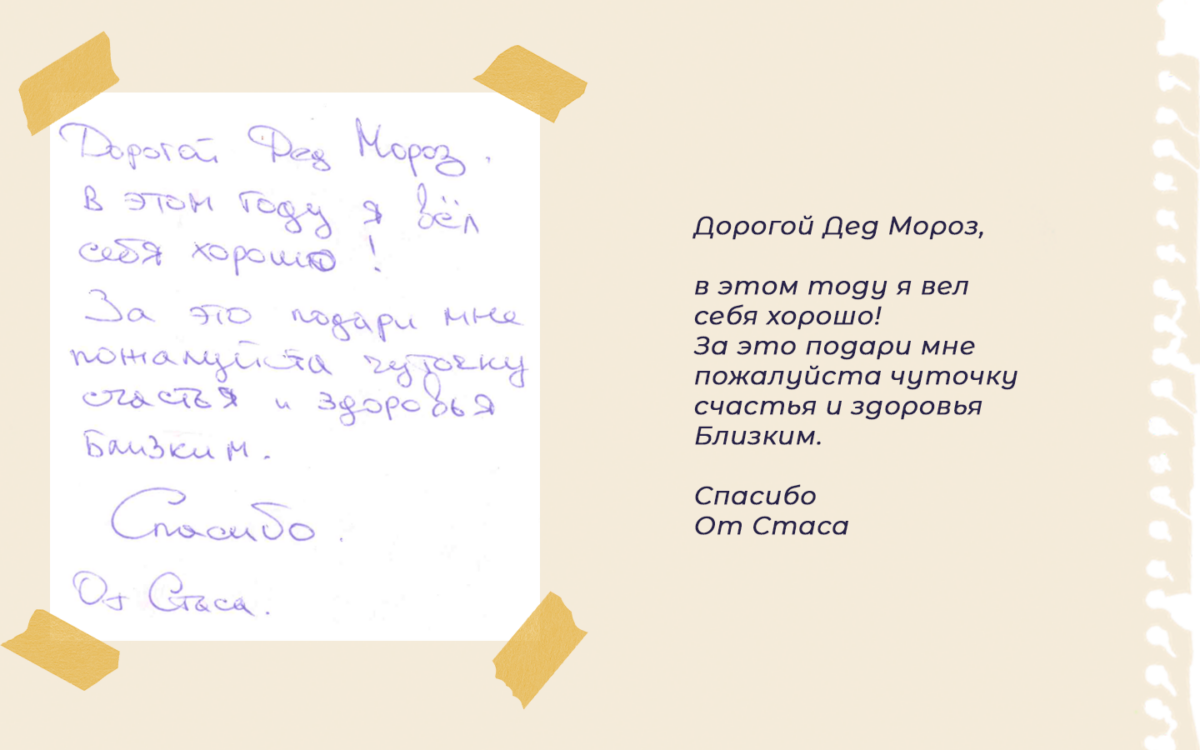 Дорогой Дед Мороз.
в этом году я вёл
себя хорошо!
За это подари мне
пожалуйста чуточку
счастья и здоровья
Близким.
Спасибо.
От Стаса.
Дорогой Дед Мороз,
в этом тоду я вел
себя хорошо!
За это подари мне
пожалуйста чуточку
счастья и здоровья
Близким.
Спасибо
От Стаса